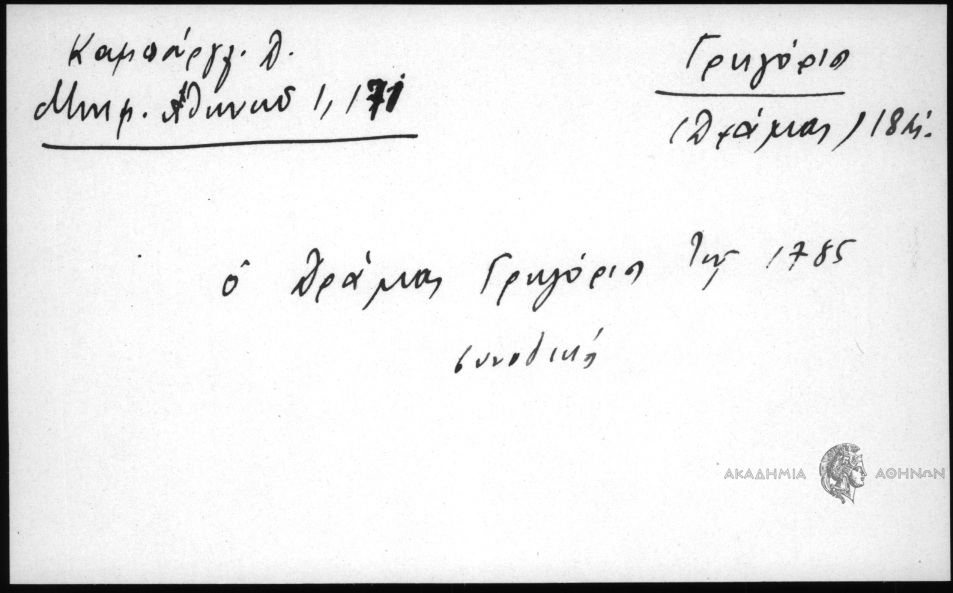 Καμπούρογλ. Δ.
Μνημ. Αθηναϊ 1, 171
Γρηγόριος
(Δράμας) 18
ὁ Δράμας Γρηγόριος της 1785
συνοδική
ΑΚΑΔΗΜΙΑ ΑΘΗΝΩΝ